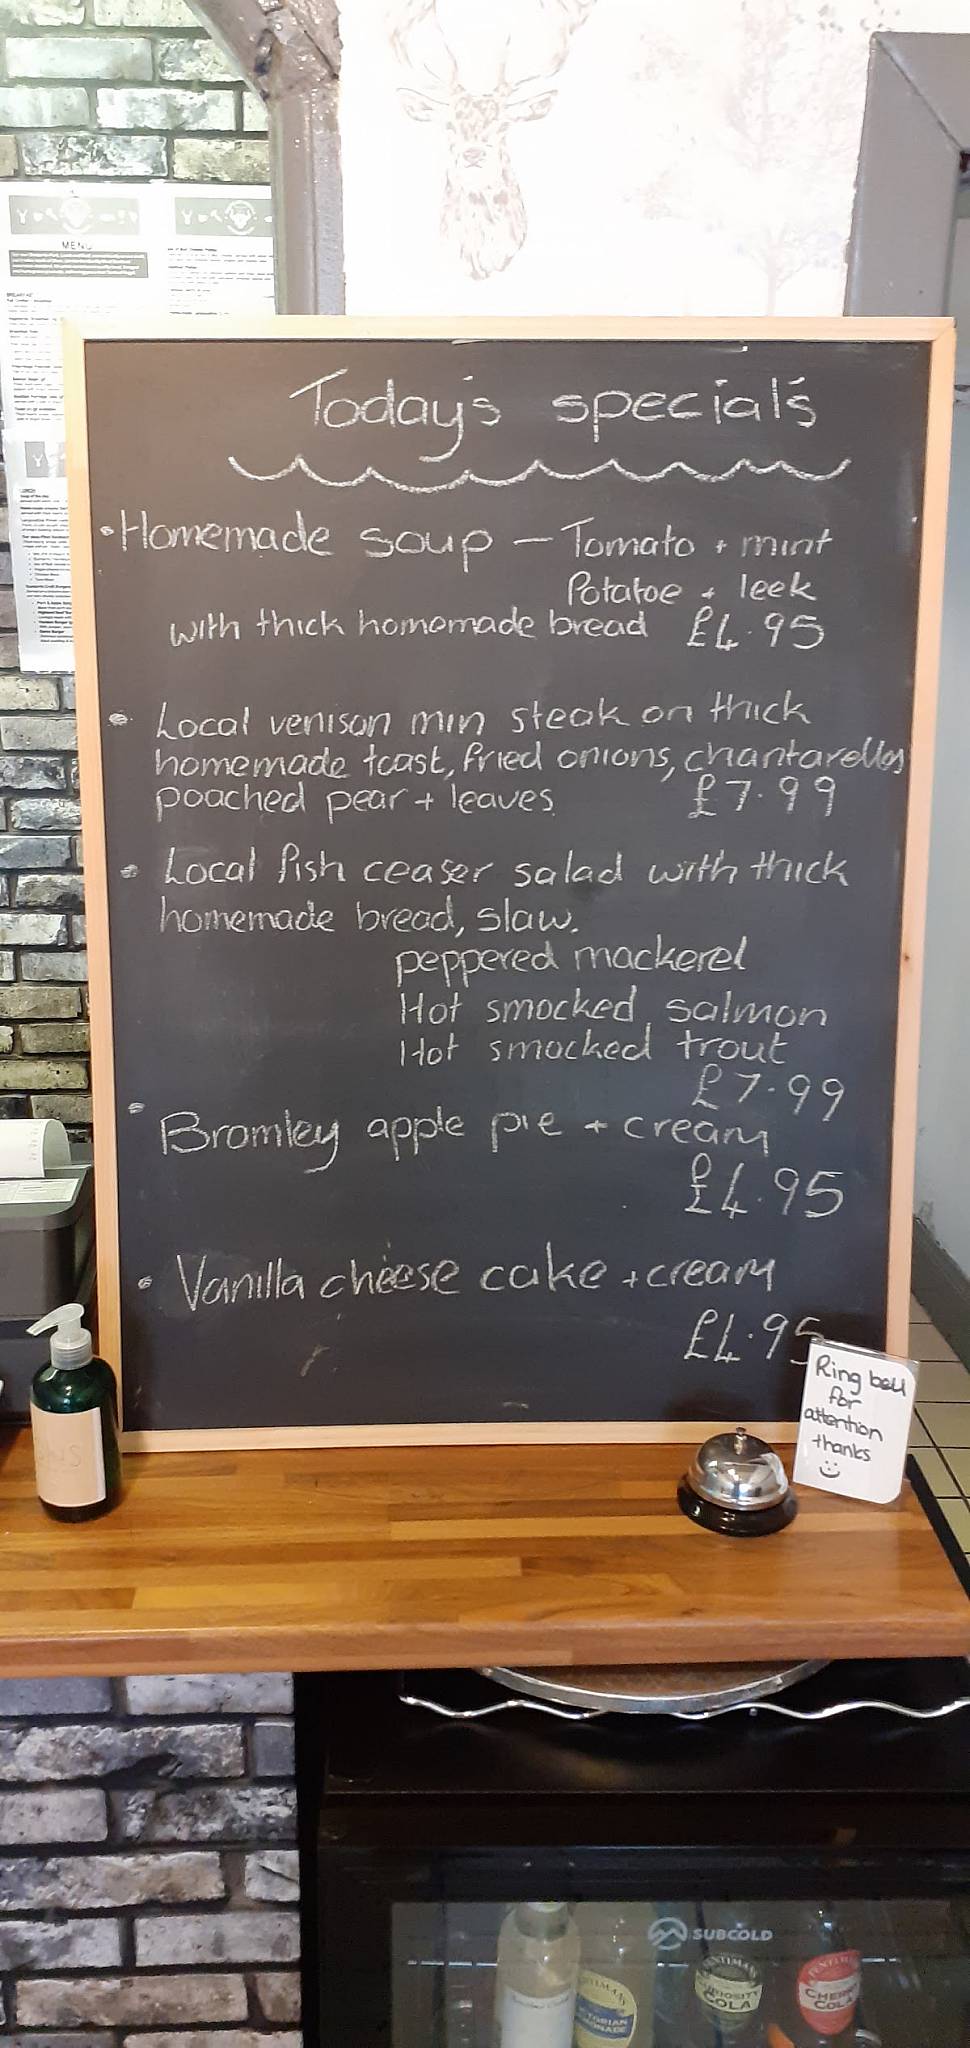 MENU
Today's special's
• Homemade soup – Tomato + mint
Potatoe + leek
with thick homemade bread £4.95
• Local venison min steak on thick
homemade toast, fried onions, chantarelles
poached pear + leaves £7.99
• Local fish ceaser salad with thick
homemade bread, slaw.
peppered mackerel
Hot smocked salmon
Hot smocked trout
£7.99
• Bromley apple pie + cream
£4.95
• Vanilla cheese cake + cream
£4.95
Ring bell
for
attention
thanks
SUBCOLD
CURIOSITY
COLA
CHERRY
COLA